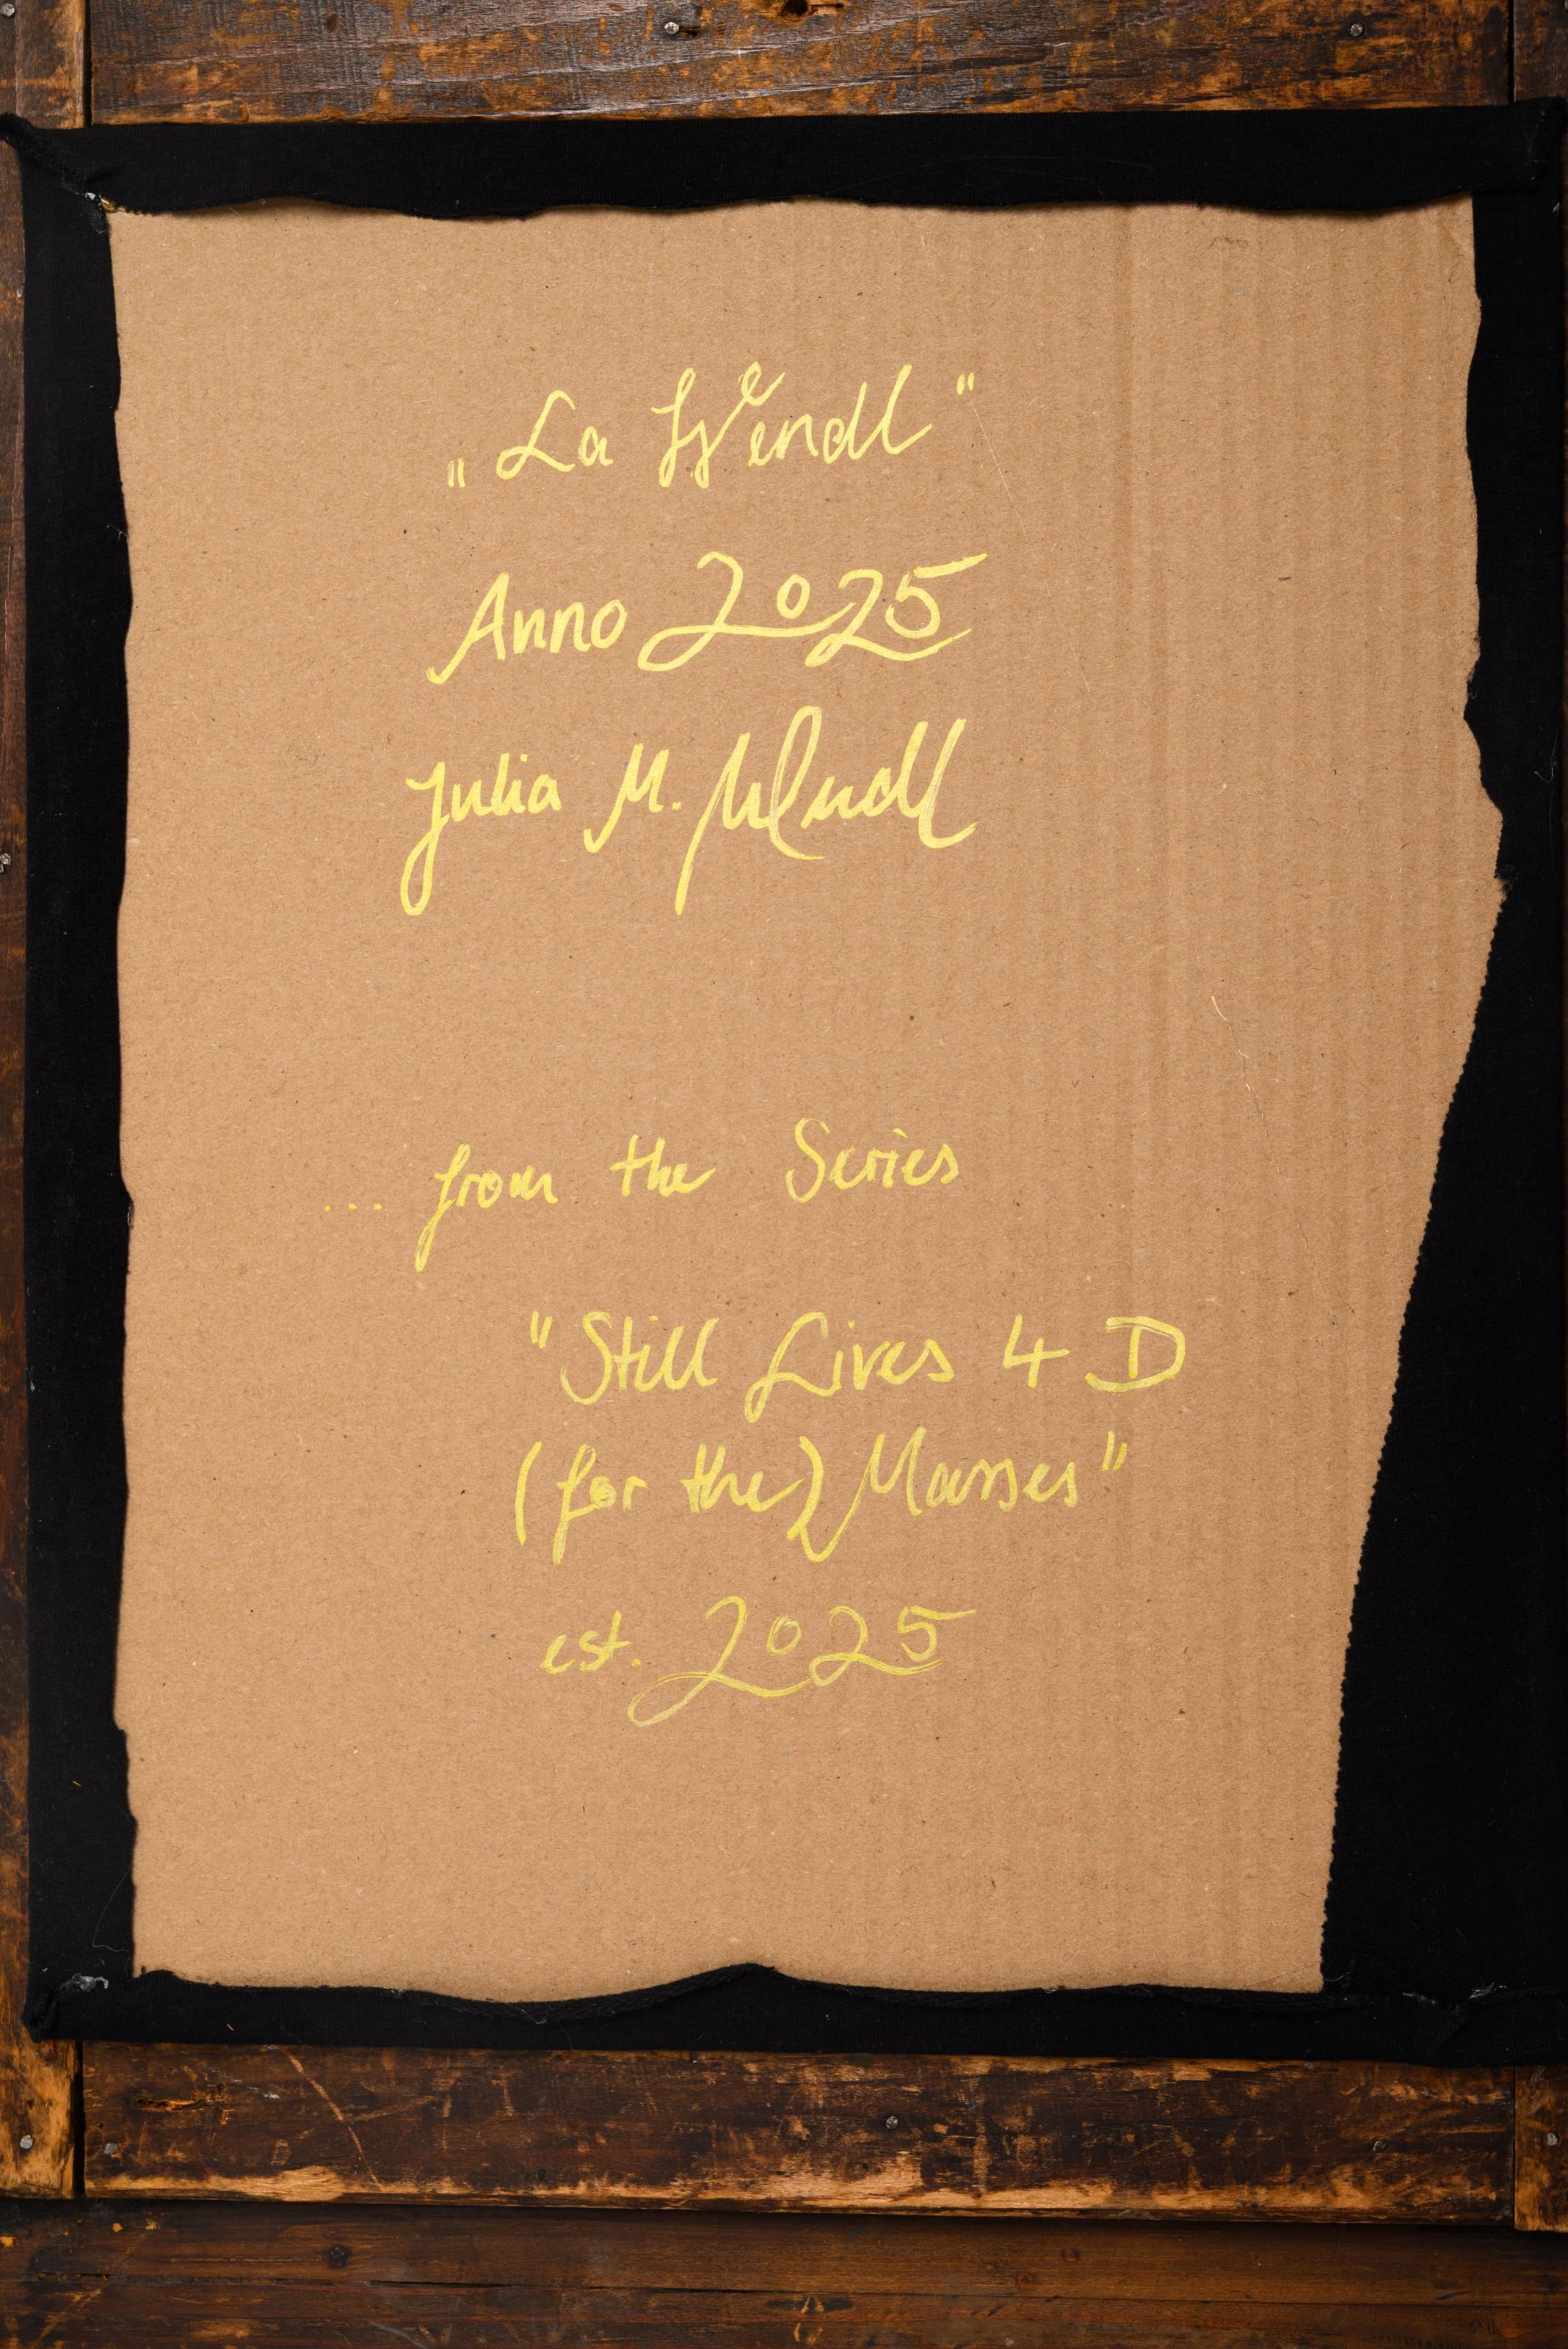 „La Wendl"
Anno 2025
Julia M. Wendl
... from the Series
"Still Lives 4 D
(for the) Masses"
est. 2025